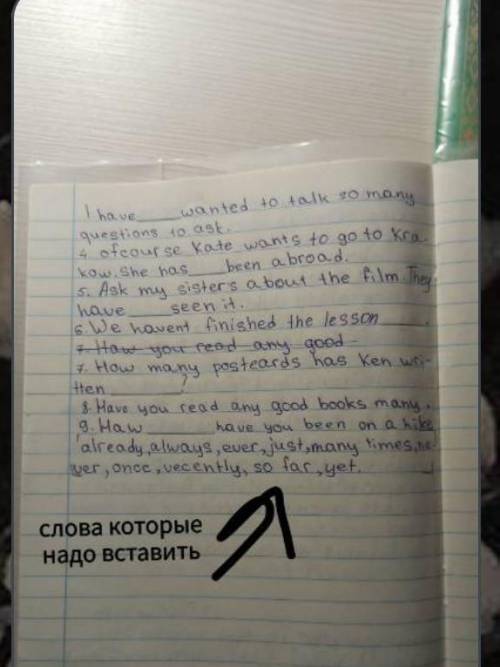 I have ____ wanted to talk so many
questions to ask.
4. ofcourse Kate wants to go to Kra-
kow. She has ___ been abroad.
5. Ask my sisters about the film. They
have ____ seen it.
6. We havent finished the lesson ____.
7. Haw you read any good
7. How many postcards has Ken wri-
tten ________?
8. Have you read any good books many.
9. Haw ______ have you been on a hike
already, always, ever, just, many times, ne-
ver, once, vecently, so far, yet.
слова которые
надо вставить